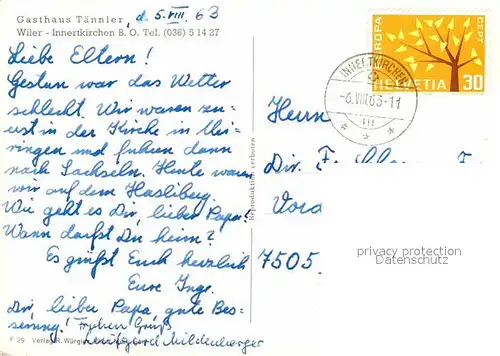 Gasthaus Tännler, d. 5. VIII. 63
Wiler - Innertkirchen B. O. Tel. (036) 5 14 27
Liebe Eltern!
Gestern war das Wetter
schlecht. Wir waren zu-
erst in der Kirche in Mei-
ringen und fuhren dann
nach Sachseln. Heute waren
wir auf dem Hasliberg.
Wie geht es Dir, lieber Papa?
Wann darfst Du heim?
Es grüßt Euch herzlich
Eure Inge.
Dir, lieber Papa, gute Bes-
serung! Frohen Gruß
Luitgard Mildenberger
F 29 Verlag R. Würgler
Reproduktion verboten
EUROPA CEPT
HELVETIA 30
INNERTKIRCHEN
-6.VIII.63-11
Herrn
Dir.
7505.
privacy protection
Datenschutz